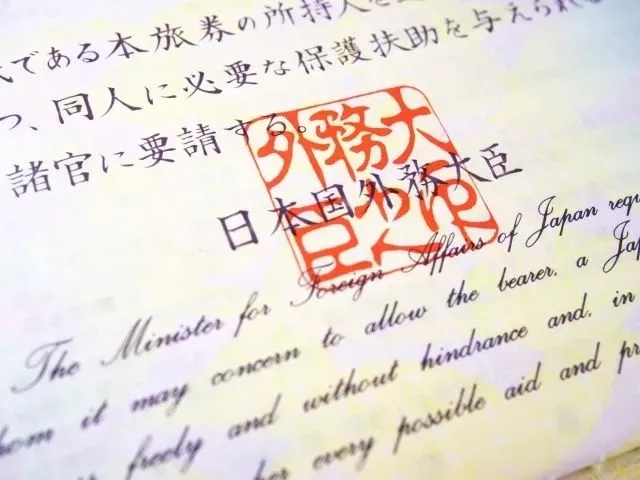 である本旅券の所持人を
つ、同人に必要な保護扶助を与えられ
諸官に要請する。
外務大
臣
日本国外務大臣
The Minister for Foreign Affairs of Japan requ
hom it may concern to allow the bearer, a Jap
freely and without hindrance and, in
her every possible aid and pr